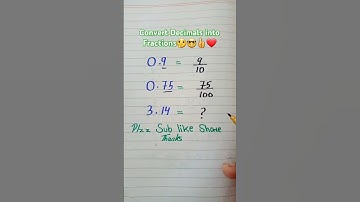 Convert Decimals into
Fractions🤔🤓👍❤️
0.9 = 9/10
0.75 = 75/100
3.14 = ?
Plzz Sub like Share
Thanks